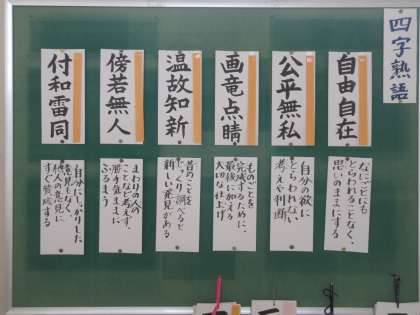 四字熟語
自由自在
なにごとにも
とらわれることなく、
思いのままにする。
公平無私
自分の欲に
とらわれない
考えや判断
画竜点睛
ものごとを
完成するために、
最後に加える
大切な仕上げ
温故知新
昔のことを
じっくり調べると
新しい発見がある
傍若無人
まわりの人の
ことなど考えず、
勝手気ままに
ふるまう
付和雷同
自分にしっかりした
意見がなく
他人の意見に
すぐ賛成する